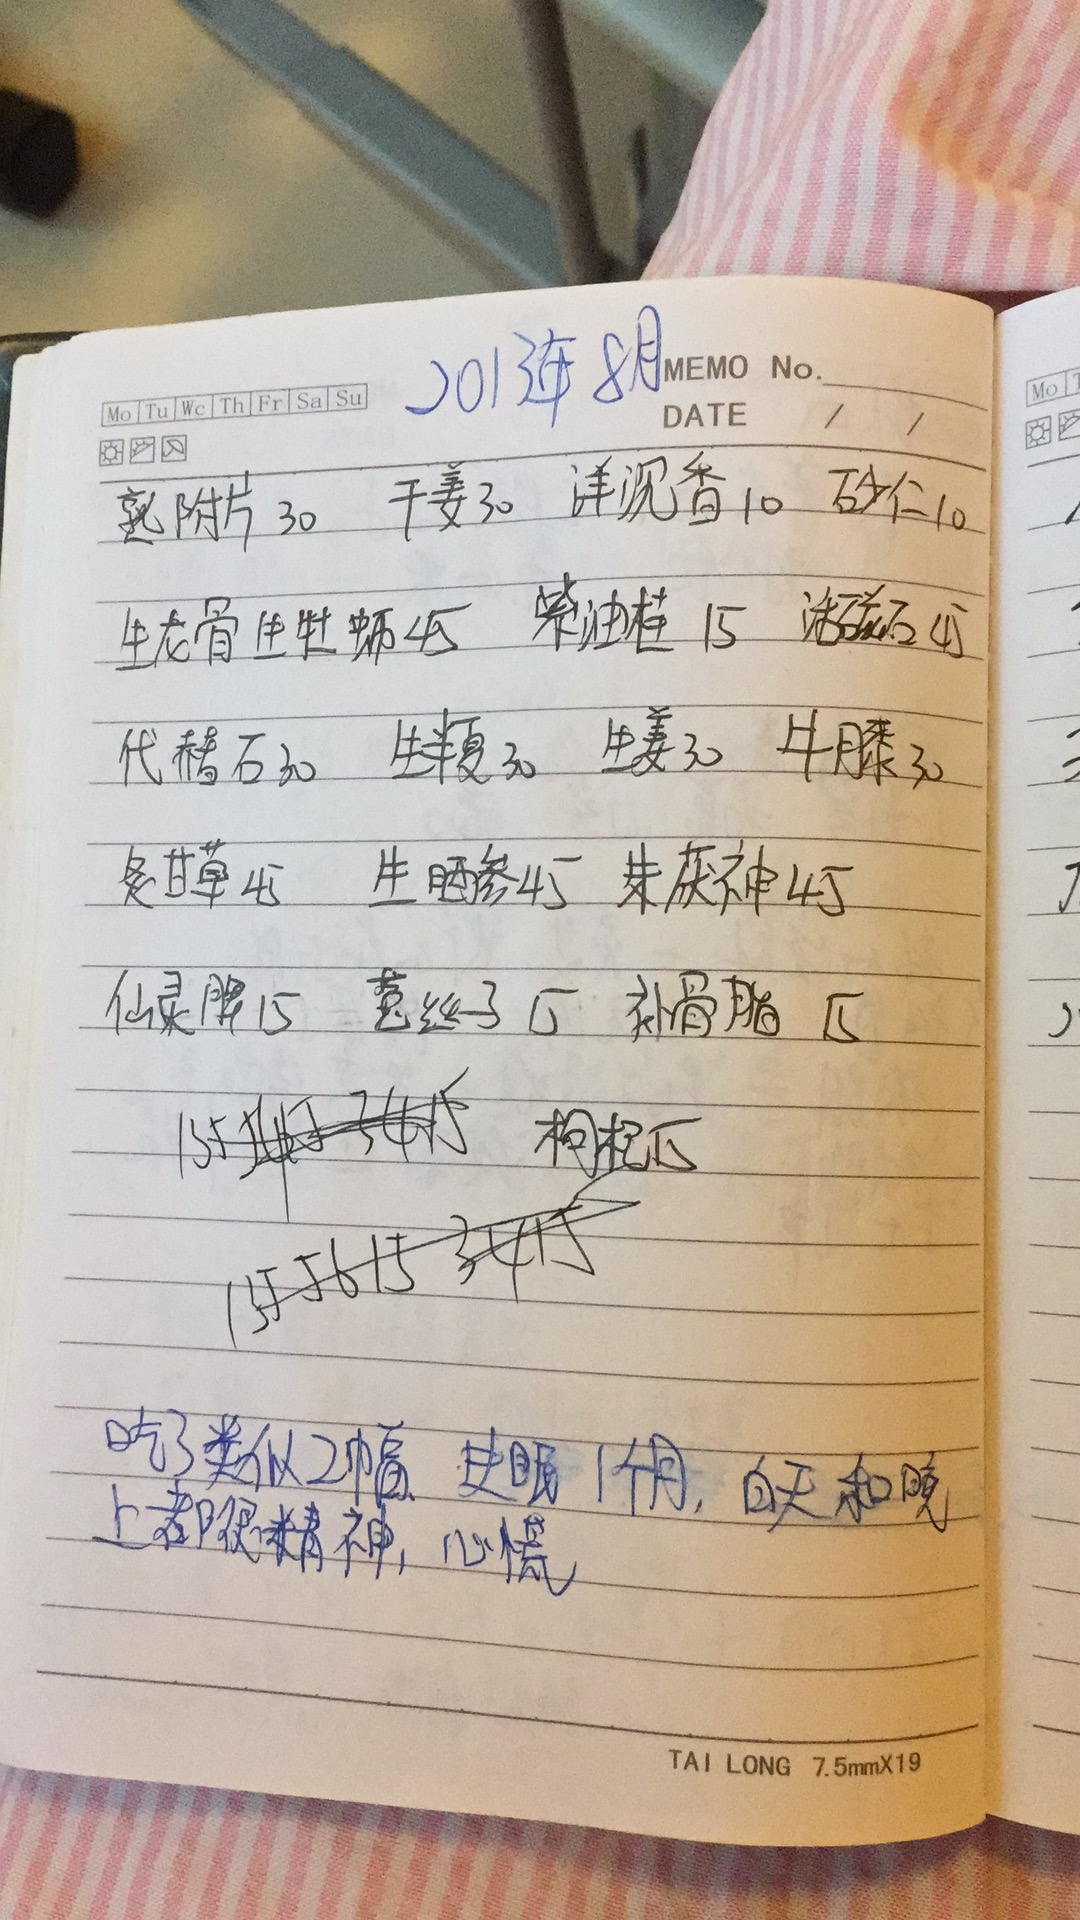 2013年8月
MEMO No.
Mo Tu We Th Fr Sa Su
DATE / /
熟附片30 干姜30 洋沉香10 砂仁10
生龙骨生牡蛎45 紫油桂 15 活磁石45
代赭石30 生半夏30 生姜30 牛膝30
炙甘草45 生晒参45 朱茯神45
仙灵脾15 菟丝子15 补骨脂 15
枸杞15
吃了类似2幅. 失眠1个月, 白天和晚
上都很精神, 心慌
TAI LONG 7.5mmX19
Mo